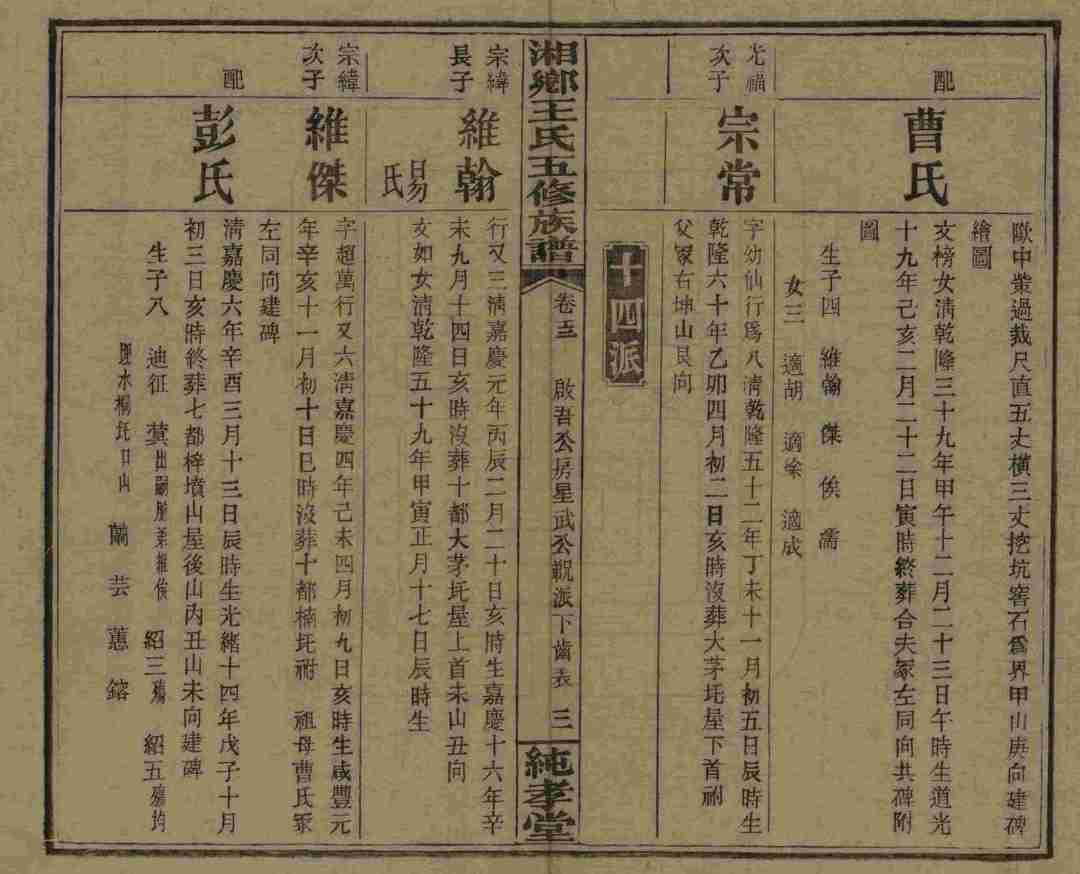 歐中叢過裁尺直五丈橫三丈挖坑窖石爲界甲山庚向建碑
繪圖
配
曹氏
文榜女淸乾隆三十九年甲午十二月二十三日午時生道光
十九年己亥二月二十二日寅時終葬合夫冢左同向共碑附
圖
生子四 維翰 傑 俟 濡
女三 適胡 適徐 適成
光福
次子
宗常
字幼仙行爲八淸乾隆五十二年丁未十一月初五日辰時生
乾隆六十年乙卯四月初二日亥時沒葬大茅圫屋下首祔
父冢右坤山艮向
十四派
湘鄉王氏五修族譜
卷 啟吾公房星武公 派下齒表 三
純孝堂
宗緯
長子
維翰
行又三淸嘉慶元年丙辰二月二十日亥時生嘉慶十六年辛
未九月十四日亥時沒葬十都大茅圫屋上首未山丑向
易氏
文如女淸乾隆五十九年甲寅正月十七日辰時生
宗緯
次子
維傑
字超萬行又六淸嘉慶四年己未四月初九日亥時生咸豐元
年辛亥十一月初十日巳時沒葬十都楠圫祔 祖母曹氏冢
左同向建碑
配
彭氏
淸嘉慶六年辛酉三月十三日辰時生光緒十四年戊子十月
初三日亥時終葬七都梓墳山屋後山內丑山未向建碑
生子八 迪征 蓂出嗣胞弟維俟 紹三殤 紹五殤均
水楊圫日山 蘭 芸 蕙 鎔